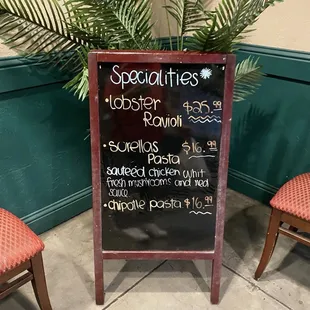 Specialities
• Lobster $25.99
Ravioli
• Surellas $16.99
Pasta
sauteed chicken whit
fresh mushrooms and red
sauce
• chipotle pasta $16.99